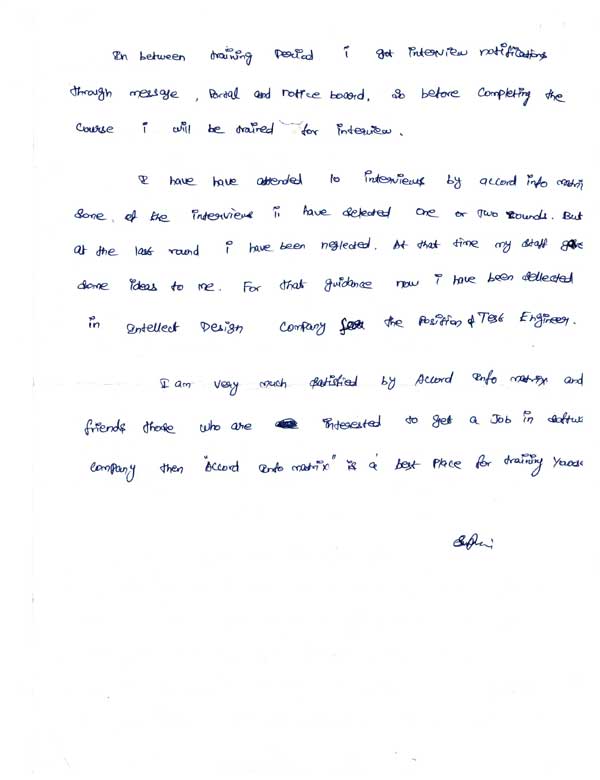 In between training period i got interview notifications
through message, Portal and notice board, so before completing the
Course i will be trained for interview.
I have have attended 10 interviews by accord info matri
Some of the interviews i have selected one or two rounds. But
at the last round i have been neglected. At that time my staff gave
some ideas to me. For that guidance now i have been sellected
in Entellect Design company for the Position of Test Engineer.
I am very much satisfied by Accord Info matrix and
friends those who are interested to get a Job in softw
company then "Accord info matrix" is a best place for training